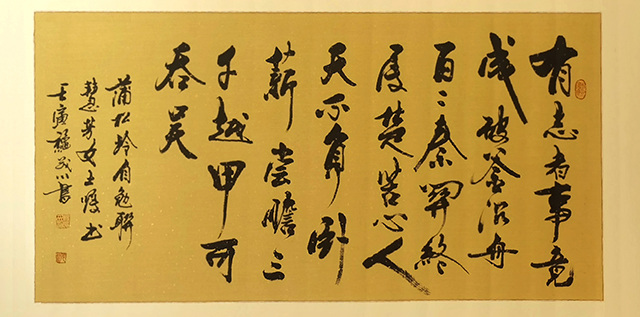 有志者事竟
成破釜沉舟
百二秦關終
屬楚苦心人
天不負卧
薪嘗膽三
千越甲可
吞吴
蒲松龄自勉聯
慧芳女士囑书
壬寅 川書